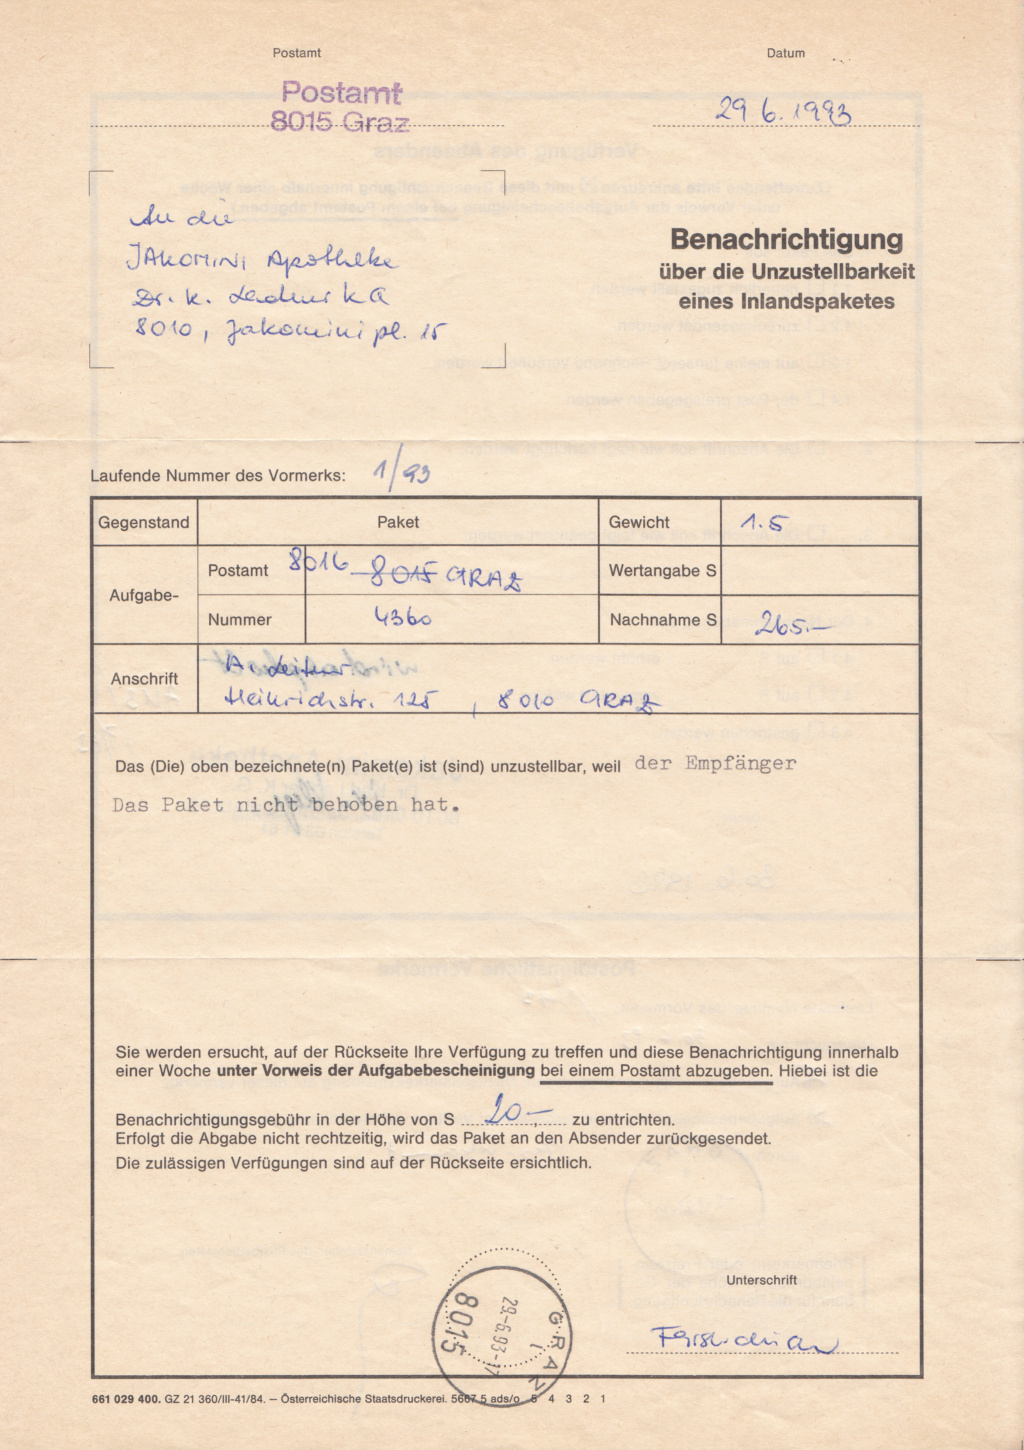 Postamt
Datum
Postamt
8015 Graz
29.6.1993
An die
JAKOMINI Apotheke
Dr. K.
8010, Jakominipl. 15
Benachrichtigung
über die Unzustellbarkeit
eines Inlandspaketes
Laufende Nummer des Vormerks: 1/93
Gegenstand Paket Gewicht 1.5
Aufgabe-
Postamt 8016 8015 GRAZ Wertangabe S
Nummer 4360 Nachnahme S 265.—
Anschrift
A. Leitner
Heinrichstr. 125, 8010 GRAZ
Das (Die) oben bezeichnete(n) Paket(e) ist (sind) unzustellbar, weil der Empfänger
Das Paket nicht behoben hat.
Sie werden ersucht, auf der Rückseite Ihre Verfügung zu treffen und diese Benachrichtigung innerhalb
einer Woche unter Vorweis der Aufgabebescheinigung bei einem Postamt abzugeben. Hiebei ist die
Benachrichtigungsgebühr in der Höhe von S 20,— zu entrichten.
Erfolgt die Abgabe nicht rechtzeitig, wird das Paket an den Absender zurückgesendet.
Die zulässigen Verfügungen sind auf der Rückseite ersichtlich.
8015 29.-6.93-17 GRAZ
Unterschrift
661 029 400. GZ 21 360/III-41/84. — Österreichische Staatsdruckerei. 5667 5 ads/o 5 4 3 2 1